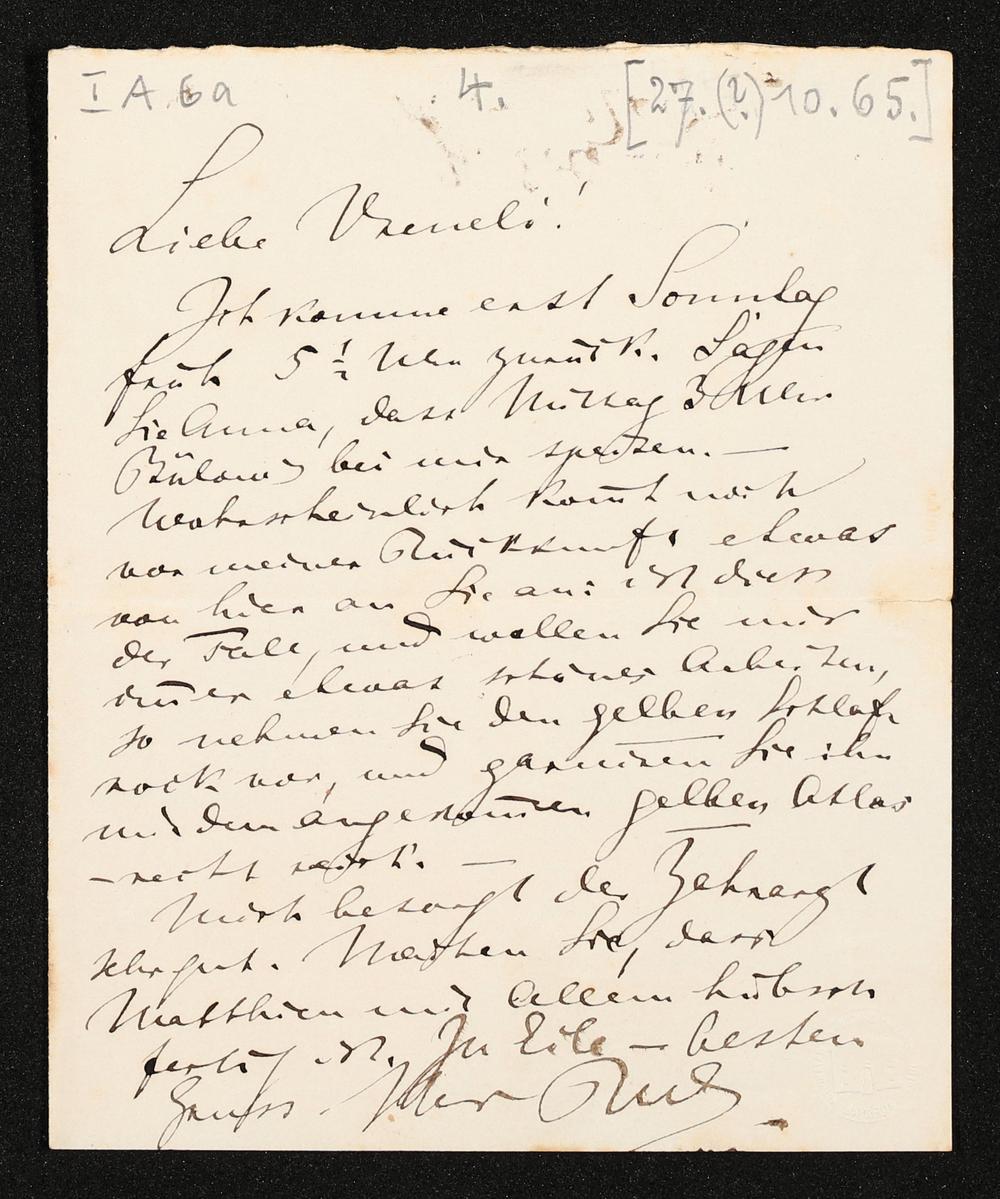 I A 6a 4. [27.(?) 10. 65.]
Liebe Vreneli!
Ich komme erst Sonntag
früh 5 ½ Uhr zurück. Sagen
Sie Anna, dass Mittag 3 Uhr
Bülows bei mir speisen. —
Wahrscheinlich kom̅t noch
vor meiner Rückkunft etwas
von hier an Sie an: ist diess
der Fall, und wollen Sie mir
im̅er etwas schönes arbeiten,
so nehmen Sie den gelben Schlaf-
rock vor, und garniren Sie ihn
mit dem angekom̅enen gelben Atlas
– recht reich. —
Mich besorgt der Zahnarzt
sehr gut. Machen Sie, dass
Matthieu mit Allem hübsch
fertig ist. In Eile — besten
Gruss.